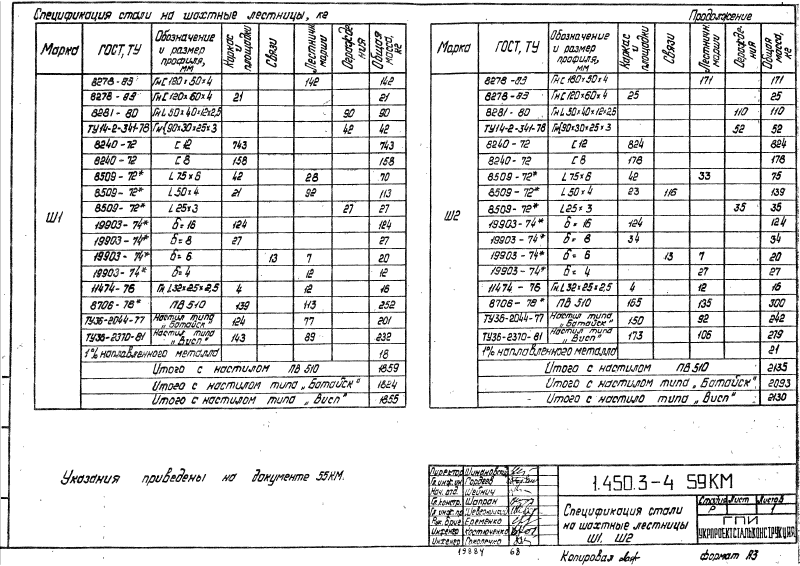 Спецификация стали на шахтные лестницы, кг
Марка ГОСТ, ТУ Обозначение и размер профиля, мм Каркас и площадки Связи Лестничн. марши Огражде-ния Общая масса, кг
Ш1
8278-83 Гн С 180×50×4 142 142
8278-83 Гн С 120×60×4 21 21
8281-80 Гн L 50×40×12×2,5 90 90
ТУ14-2-341-78 Гн{90×30×25×3 42 42
8240-72 С 12 743 743
8240-72 С 8 158 158
8509-72* L 75×6 42 28 70
8509-72* L 50×4 21 92 113
8509-72* L 25×3 27 27
19903-74* б=16 124 124
19903-74* б=8 27 27
19903-74* б=6 13 7 20
19903-74* б=4 12 12
11474-76 Гн L 32×25×2,5 4 12 16
8706-78* ПВ 510 139 113 252
ТУ36-2044-77 Настил типа „Батайск" 124 77 201
ТУ36-2370-81 Настил типа „Висп" 143 89 232
1% наплавленного металла 18
Итого с настилом ПВ 510 1859
Итого с настилом типа „Батайск" 1824
Итого с настилом типа „Висп" 1855
Продолжение
Марка ГОСТ, ТУ Обозначение и размер профиля, мм Каркас и площадки Связи Лестничн. марши Огражде-ния Общая масса, кг
Ш2
8278-83 Гн С 180×50×4 171 171
8278-83 Гн С 120×60×4 25 25
8281-80 Гн L 50×40×12×2,5 110 110
ТУ14-2-341-78 Гн{90×30×25×3 52 52
8240-72 С 12 824 824
8240-72 С 8 178 178
8509-72* L 75×6 42 33 75
8509-72* L 50×4 23 116 139
8509-72* L 25×3 35 35
19903-74* б=16 124 124
19903-74* б=8 34 34
19903-74* б=6 13 7 20
19903-74* б=4 27 27
11474-76 Гн L 32×25×2,5 4 12 16
8706-78* ПВ 510 165 135 300
ТУ36-2044-77 Настил типа „Батайск" 150 92 242
ТУ36-2370-81 Настил типа „Висп" 173 106 279
1% наплавленного металла 21
Итого с настилом ПВ 510 2135
Итого с настилом типа „Батайск" 2093
Итого с настилом типа „Висп" 2130
Указания приведены на документе 55КМ.
Директор
Гл. инж. ин. Гордеев
Нач. отд. Шейнич
Гл. констр. Шапран
Гл. инж. пр.
Рук. бриг. Еременко
Инженер Костюченко
Инженер
1.450.3-4 59КМ
Спецификация стали на шахтные лестницы Ш1, Ш2
Стадия Лист Листов
Р 1
ГПИ
УКРПРОЕКТСТАЛЬКОНСТРУКЦИЯ
19884 68
Копировал формат А3